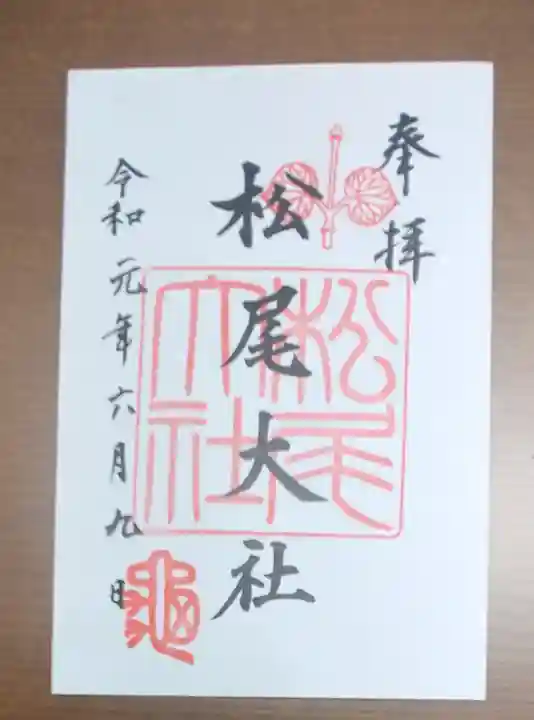 奉拝
松尾大社
松尾大社
令和元年六月九日